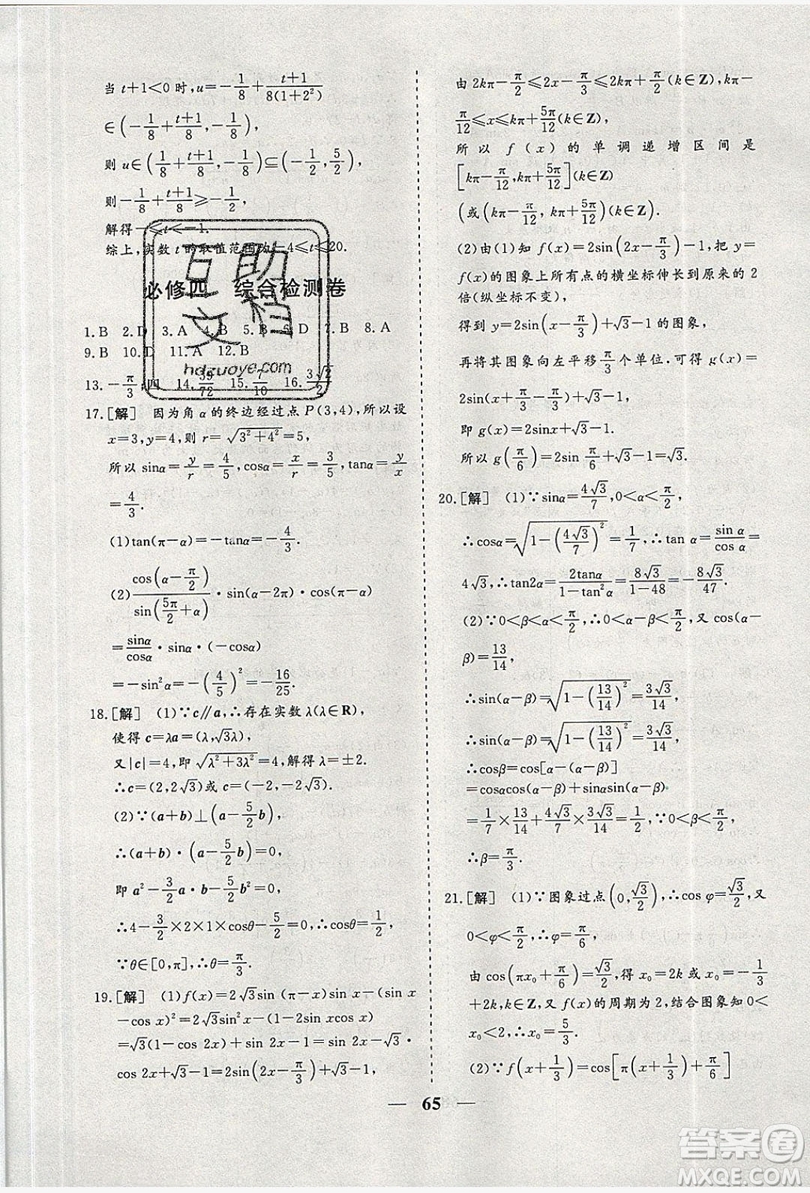 当 t+1<0 时,u=-1/8+(t+1)/(8(1+2²))
∈(-1/8+(t+1)/8,-1/8),
则 u∈(-1/8+(t+1)/8,-1/8)⊆(-1/2,5/2),
则-1/8+(t+1)/8≥-1/2,
解得-4≤t<-1.
综上,实数 t 的取值范围为-4≤t≤20.
必修四 综合检测卷
1.B 2.D 3.A 4.B 5.B 6.D 7.B 8.A
9.B 10.D 11.A 12.B
13.-π/3,四 14.35/72 15.7/10 16.3√2/2
17.[解] 因为角 α 的终边经过点 P(3,4),所以设
x=3,y=4,则 r=√(3²+4²)=5,
所以 sinα=y/r=4/5,cosα=x/r=3/5,tanα=y/x
=4/3.
(1)tan(π-α)=-tanα=-4/3.
(2)cos(α-π/2)/sin(5π/2+α)·sin(α-2π)·cos(π-α)
=sinα/cosα·sinα·(-cosα)
=-sin²α=-(4/5)²=-16/25.
18.[解] (1)∵c∥a,∴存在实数 λ(λ∈R),
使得 c=λa=(λ,√3λ),
又|c|=4,即√(λ²+3λ²)=4,解得 λ=±2.
∴c=(2,2√3)或(-2,-2√3).
(2)∵(a+b)⊥(a-5/2b),
∴(a+b)·(a-5/2b)=0,
即 a²-3/2a·b-5/2b²=0,
∴4-3/2×2×1×cosθ-5/2=0,∴cosθ=1/2.
∵θ∈[0,π],∴θ=π/3.
19.[解] (1)f(x)=2√3sin (π-x)sin x-(sin x
-cos x)²=2√3sin²x-(1-2sin xcos x)
=√3(1-cos 2x)+sin 2x-1=sin 2x-√3
cos 2x+√3-1=2sin(2x-π/3)+√3-1,
由 2kπ-π/2≤2x-π/3≤2kπ+π/2(k∈Z),得 kπ-
π/12≤x≤kπ+5π/12(k∈Z),
所以 f(x)的单调递增区间是
[kπ-π/12,kπ+5π/12](k∈Z)
(或(kπ-π/12,kπ+5π/12)(k∈Z)).
(2)由(1)知 f(x)=2sin(2x-π/3)+√3-1,把 y=
f(x)的图象上所有点的横坐标伸长到原来的 2 倍
(纵坐标不变),
得到 y=2sin(x-π/3)+√3-1 的图象,
再将其图象向左平移π/3个单位,可得到 y=
2sin(x+π/3-π/3)+√3-1,
即 g(x)=2sin x+√3-1 的图象,
所以 g(π/6)=2sinπ/6+√3-1=√3.
20.[解] (1)∵sinα=4√3/7,0<α<π/2,
∴cosα=√(1-(4√3/7)²)=1/7,∴tan α=sin α/cos α=
4√3,∴tan2α=2tanα/(1-tan²α)=8√3/(1-48)=-8√3/47.
(2)∵0<β<α<π/2,∴0<α-β<π/2,又 cos(α-
β)=13/14,
∴sin(α-β)=√(1-(13/14)²)=3√3/14,
∴cosβ=cos[α-(α-β)]=
cosαcos(α-β)+sinαsin(α-β)
=1/7×13/14+4√3/7×3√3/14=1/2,∵0<β<π/2,
∴β=π/3.
21.[解] (1)∵图象过点(0,√3/2),∴cos φ=√3/2,又
0<φ<π/2,∴φ=π/6.
由 cos(πx₀+π/6)=√3/2,得 x₀=2k 或 x₀=-1/3
+2k,k∈Z,又 f(x)的周期为 2,结合图象知 0<
x₀<2,∴x₀=5/3.
(2)∵f(x+1/3)=cos[π(x+1/3)+π/6]
65
互助
文档
hdzuoye.com
答案圈
MXQE.COM